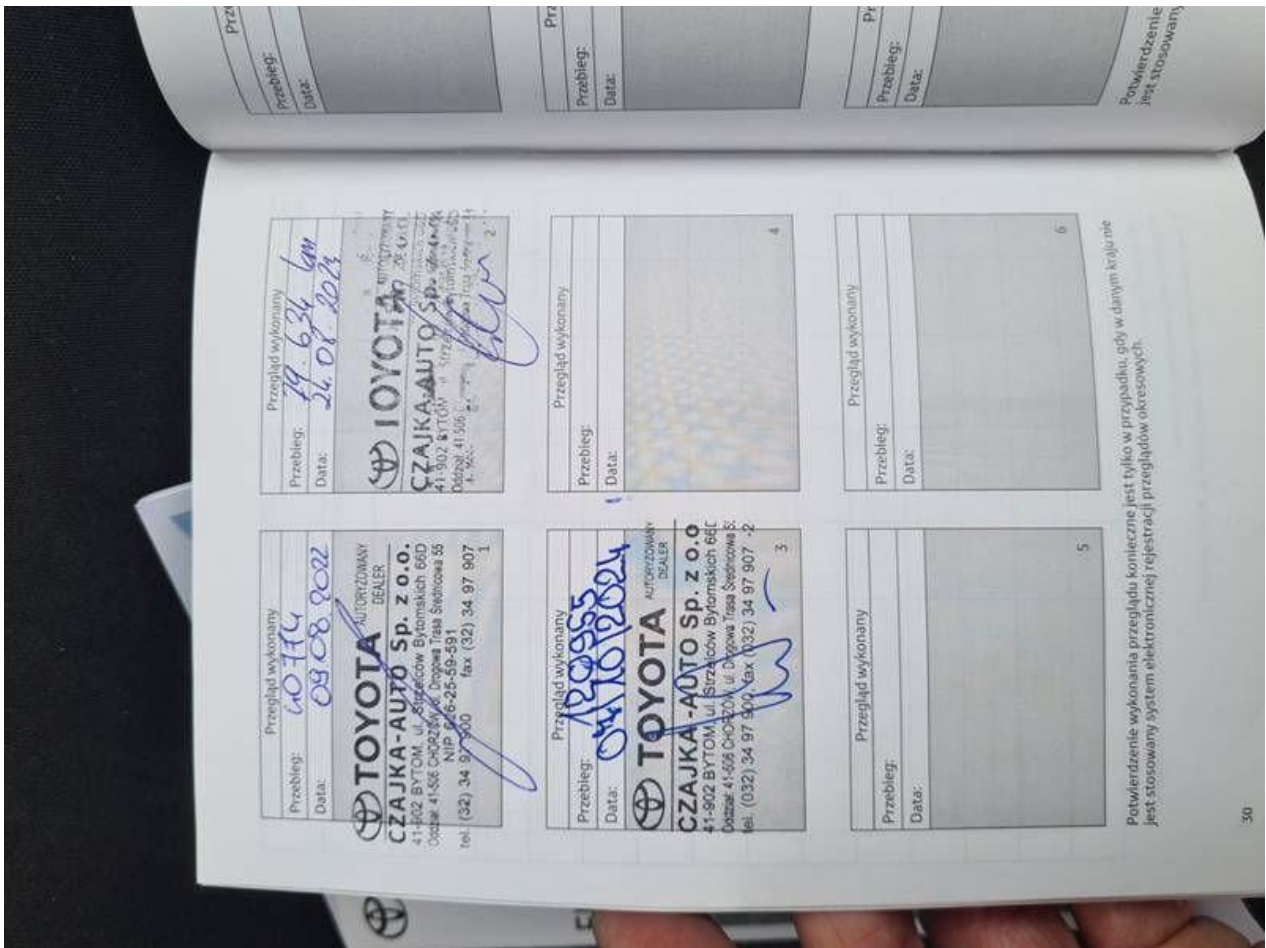 Przegląd wykonany
Przebieg: 40774
Data: 09.08.2022
TOYOTA AUTORYZOWANY
DEALER
CZAJKA-AUTO Sp. z o.o.
41-902 BYTOM, ul. Strzelców Bytomskich 66D
Oddział 41-506 CHORZÓW, ul. Drogowa Trasa Średnicowa 55
NIP 626-25-59-591
tel. (32) 34 97 900 fax (32) 34 97 907
1
Przegląd wykonany
Przebieg: 79.634 km
Data: 24.08.2023
TOYOTA
CZAJKA-AUTO Sp.
41-902 BYTOM ul. Strzel
Oddział 41-506
2
Przegląd wykonany
Przebieg: 120955
Data: 04/10/2024
TOYOTA AUTORYZOWANY
DEALER
CZAJKA-AUTO Sp. z o.o
41-902 BYTOM, ul. Strzelców Bytomskich 66D
Oddział 41-506 CHORZÓW, ul. Drogowa Trasa Średnicowa 5
tel. (032) 34 97 900, fax (032) 34 97 907 -2
3
Przegląd wykonany
Przebieg:
Data:
4
Przegląd wykonany
Przebieg:
Data:
5
Przegląd wykonany
Przebieg:
Data:
6
Potwierdzenie wykonania przeglądu konieczne jest tylko w przypadku, gdy w danym kraju nie
jest stosowany system elektronicznej rejestracji przeglądów okresowych.
30
Prz
Przebieg:
Data:
Prz
Przebieg:
Data:
Pr
Przebieg:
Data:
Potwierdzenie
jest stosowany